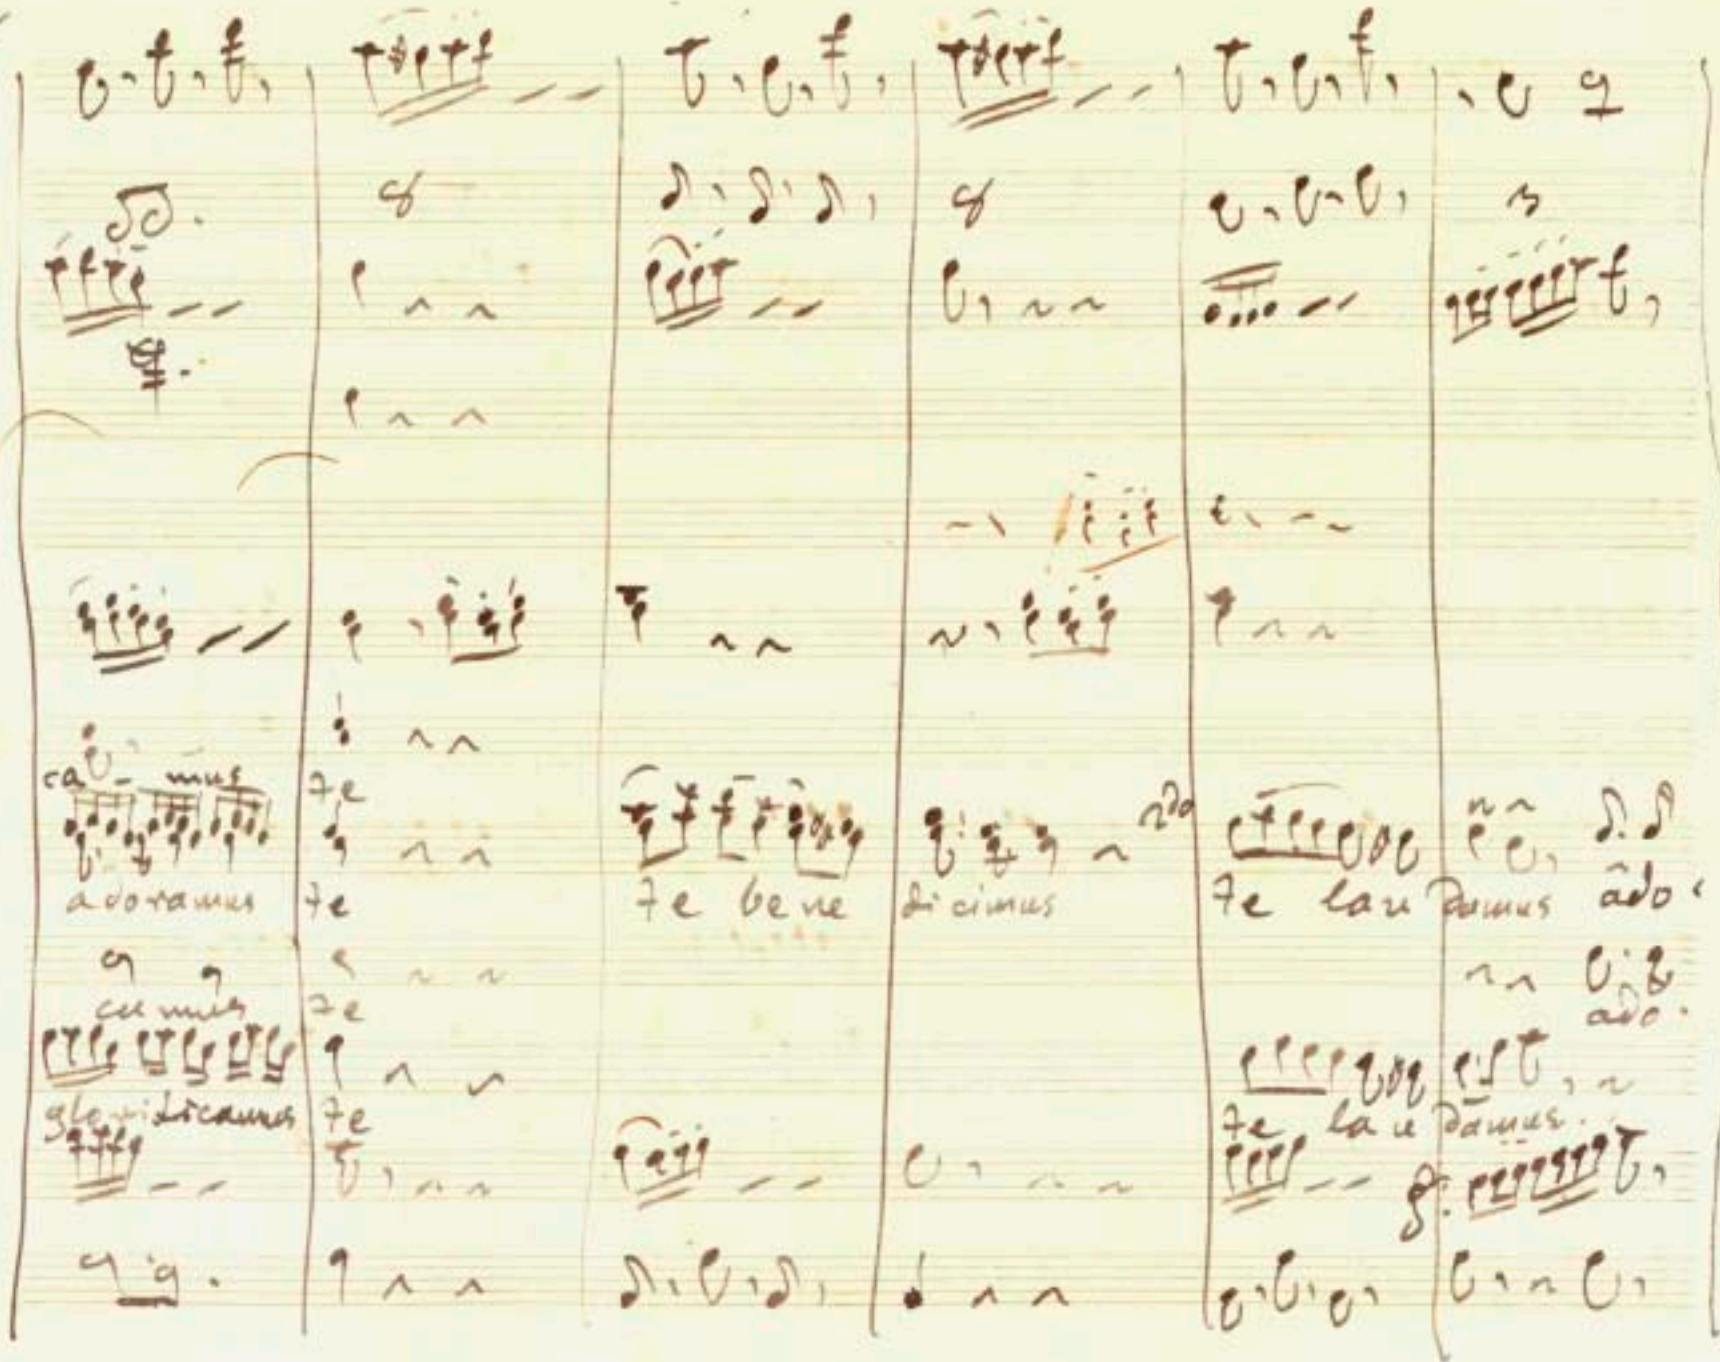 ca - mus Te
adoramus Te Te bene dicimus Te lau damus ado
camus Te ado.
glorificamus Te Te lau damus.